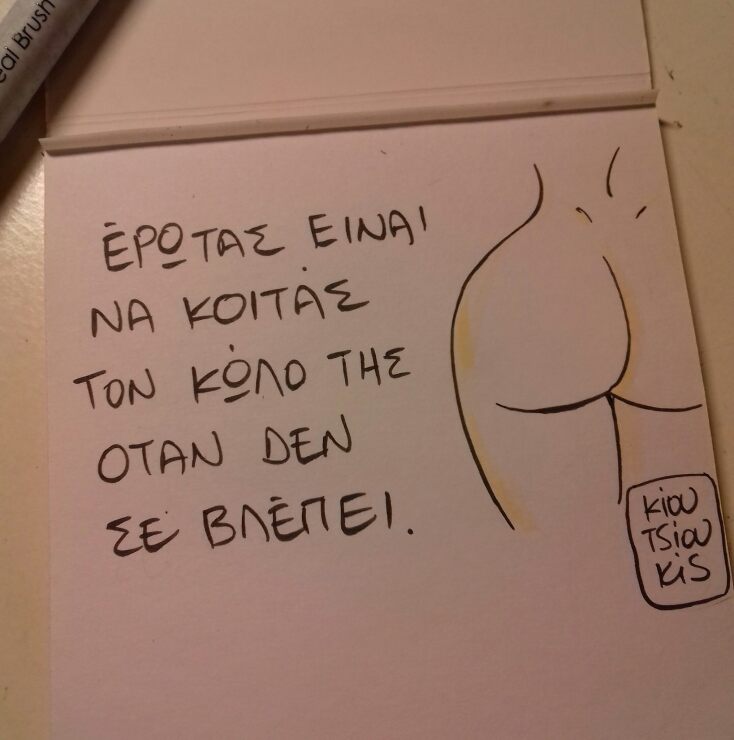 eal Brush
ΕΡΩΤΑΣ ΕΙΝΑΙ
ΝΑ ΚΟΙΤΑΣ
ΤΟΝ ΚΩΛΟ ΤΗΣ
ΟΤΑΝ ΔΕΝ
ΣΕ ΒΛΕΠΕΙ.
κίου
τsίου
κis